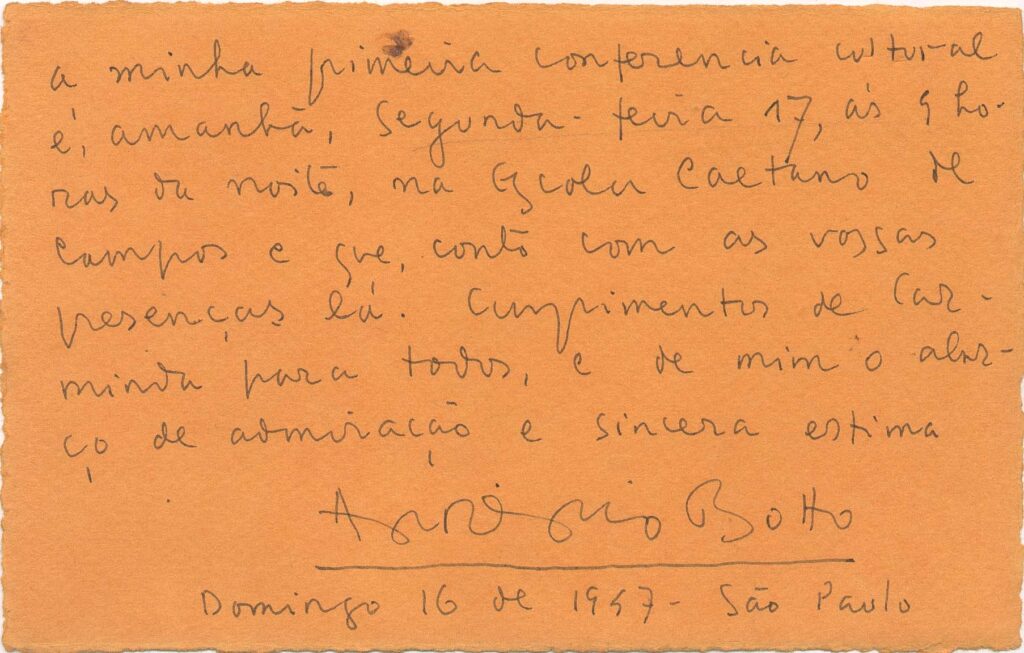 a minha primeira conferencia cultural
é, amanhã, segunda-feira 17, ás 9 ho-
ras da noite, na Escola Caetano de
Campos e que, conto com as vossas
presenças lá. Cumprimentos de Car-
minda para todos, e de mim o abra-
ço de admiração e sincera estima
António Botto
Domingo 16 de 1947 - São Paulo